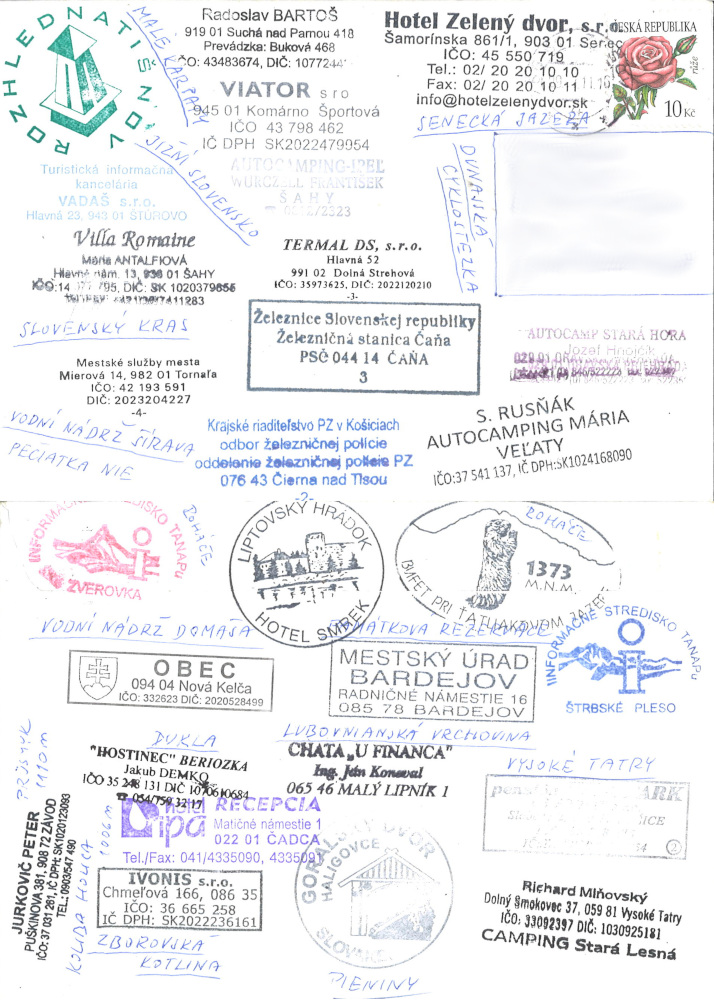 ROZHLEDNA TIŠNOV
MALÉ KARPATY
Radoslav BARTOŠ
919 01 Suchá nad Parnou 418
Prevádzka: Buková 468
IČO: 43483674, DIČ:
Hotel Zelený dvor, s.r.o.
Šamorínska 861/1, 903 01 Senec
IČO: 45 550 719
Tel.: 02/ 20 20 10 10
Fax: 02/ 20 20 10 11
info@hotelzelenydvor.sk
SENECKÁ JAZERA
ČESKÁ REPUBLIKA
růže
10 Kč
VIATOR s r o
945 01 Komárno Športová
IČO 43 798 462
IČ DPH SK2022479954
JIŽNÍ SLOVENSKO
AUTOCAMPING-IPEĽ
WURCZELL FRANTIŠEK
ŠAHY
DUNAJSKÁ
CYKLOSTEZKA
Turistická informačná
kancelária
VADAŠ s.r.o.
Hlavná 23, 943 01 ŠTÚROVO
Villa Romaine
Mária ANTALFIOVÁ
Hlavné nám. 13, 936 01 ŠAHY
DIČ: SK 1020379655
TERMAL DS, s.r.o.
Hlavná 52
991 02 Dolná Strehová
IČO: 35973625, DIČ: 2022120210
-3-
SLOVENSKÝ KRAS
Železnice Slovenskej republiky
Železničná stanica Čaňa
PSČ 044 14 ČAŇA
3
AUTOCAMP STARÁ HORA
Jozef Hnojčík
Mestské služby mesta
Mierová 14, 982 01 Tornaľa
IČO: 42 193 591
DIČ: 2023204227
-4-
VODNÍ NÁDRŽ ŠÍRAVA
PEČIATKA NIE
Krajské riaditeľstvo PZ v Košiciach
odbor železničnej polície
oddelenie železničnej polície PZ
076 43 Čierna nad Tisou
-2-
S. RUSŇÁK
AUTOCAMPING MÁRIA
VEĽATY
IČO:37 541 137, IČ DPH:SK1024168090
INFORMAČNÉ STREDISKO TANAPu
ZVEROVKA
ROHÁČE
LIPTOVSKÝ HRÁDOK
HOTEL SMREK
ROHÁČE
1373
M.N.M.
BUFET PRI ŤATLIAKOVOM
VODNÍ NÁDRŽ DOMAŠA
PAMÁTKOVÁ REZERVACE
INFORMAČNÉ STREDISKO TANAPu
ŠTRBSKÉ PLESO
OBEC
094 04 Nová Kelča
IČO: 332623 DIČ: 2020528499
MESTSKÝ ÚRAD
BARDEJOV
RADNIČNÉ NÁMESTIE 16
085 78 BARDEJOV
DUKLA
ĽUBOVNIANSKÁ VRCHOVINA
VYSOKÉ TATRY
"HOSTINEC" BERIOZKA
Jakub DEMKO
IČO 35 248 131 DIČ
☎ 054/759 32 17
CHATA „U FINANCA"
Ing. Ján Konoval
065 46 MALÝ LIPNÍK 1
hotel RECEPCIA
lipa
Matičné námestie 1
022 01 ČADCA
Tel./Fax: 041/4335090, 4335091
PARK
2
JURKOVIČ PETER
PUŠKINOVA 381, 908 72 ZÁVOD
IČO: 37 031 261, IČ DPH: SK1020123093
TEL.: 0903/547 490
IVONIS s.r.o.
Chmeľová 166, 086 35
IČO: 36 665 258
IČ DPH: SK2022236161
ZBOROVSKÁ
KOTLINA
GORALSKÝ DVOR
HALIGOVCE
PIENINY
Richard Mlňovský
Dolný Smokovec 37, 059 81 Vysoké Tatry
IČO: 33092397 DIČ: 1030925181
CAMPING Stará Lesná